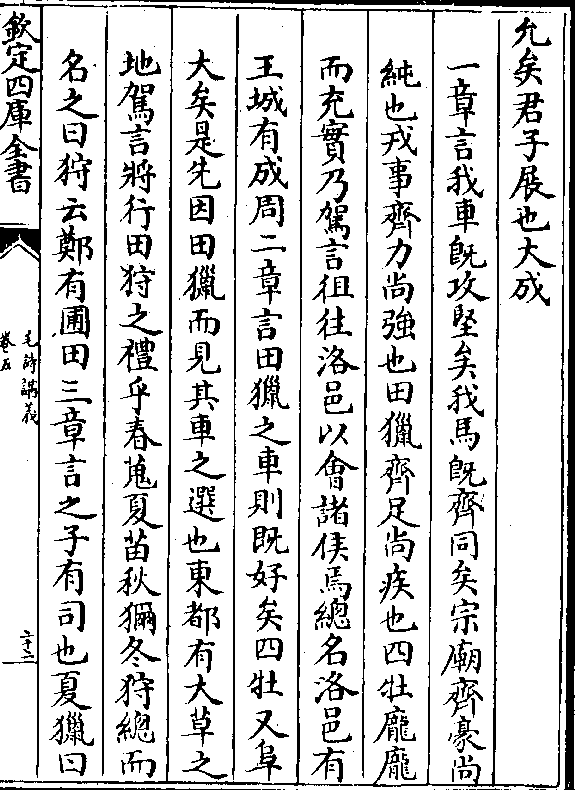 允矣君子展也大成
一章言我車既攻堅矣我馬既齊同矣宗廟齊豪尚
純也戎事齊力尚強也田獵齊足尚疾也四牡龐龐
而充實乃駕言徂往洛邑以會諸侯焉總名洛邑有
王城有成周二章言田獵之車則既好矣四牡又阜
大矣是先因田獵而見其車之選也東都有大草之
地駕言將行田狩之禮乎春蒐夏苗秋獮冬狩總而
名之曰狩云鄭有圃田三章言之子有司也夏獵曰
欽定四庫全書
毛詩講義
卷五
二十二